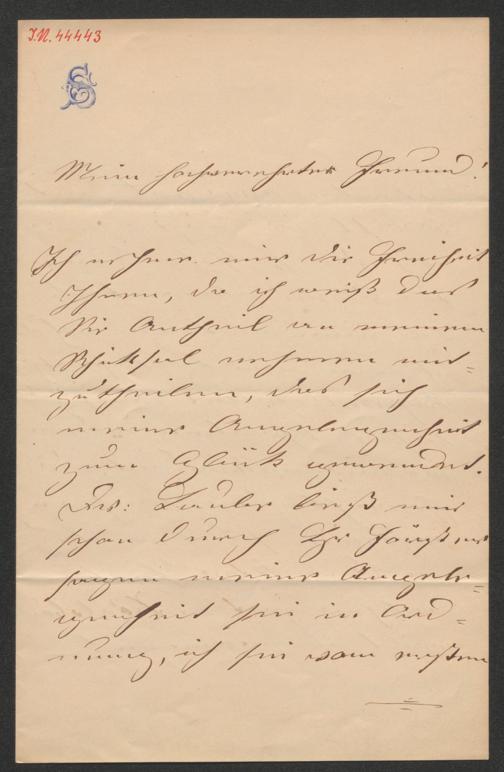 J.N. 44443
S
Mein hochverehrter Freund!
Ich nehme mir die Freiheit
Ihnen, da ich weiß das
Sie Antheil an meinem
Schiksal nehmen mit=
zutheilen, das sich
meine Angelegenheit
zum Glück gewendet.
Dr: ließ mir
schon durch Hr Förster
sagen meine Angele=
genheit sei in Ord=
nung, ich sei vom ersten